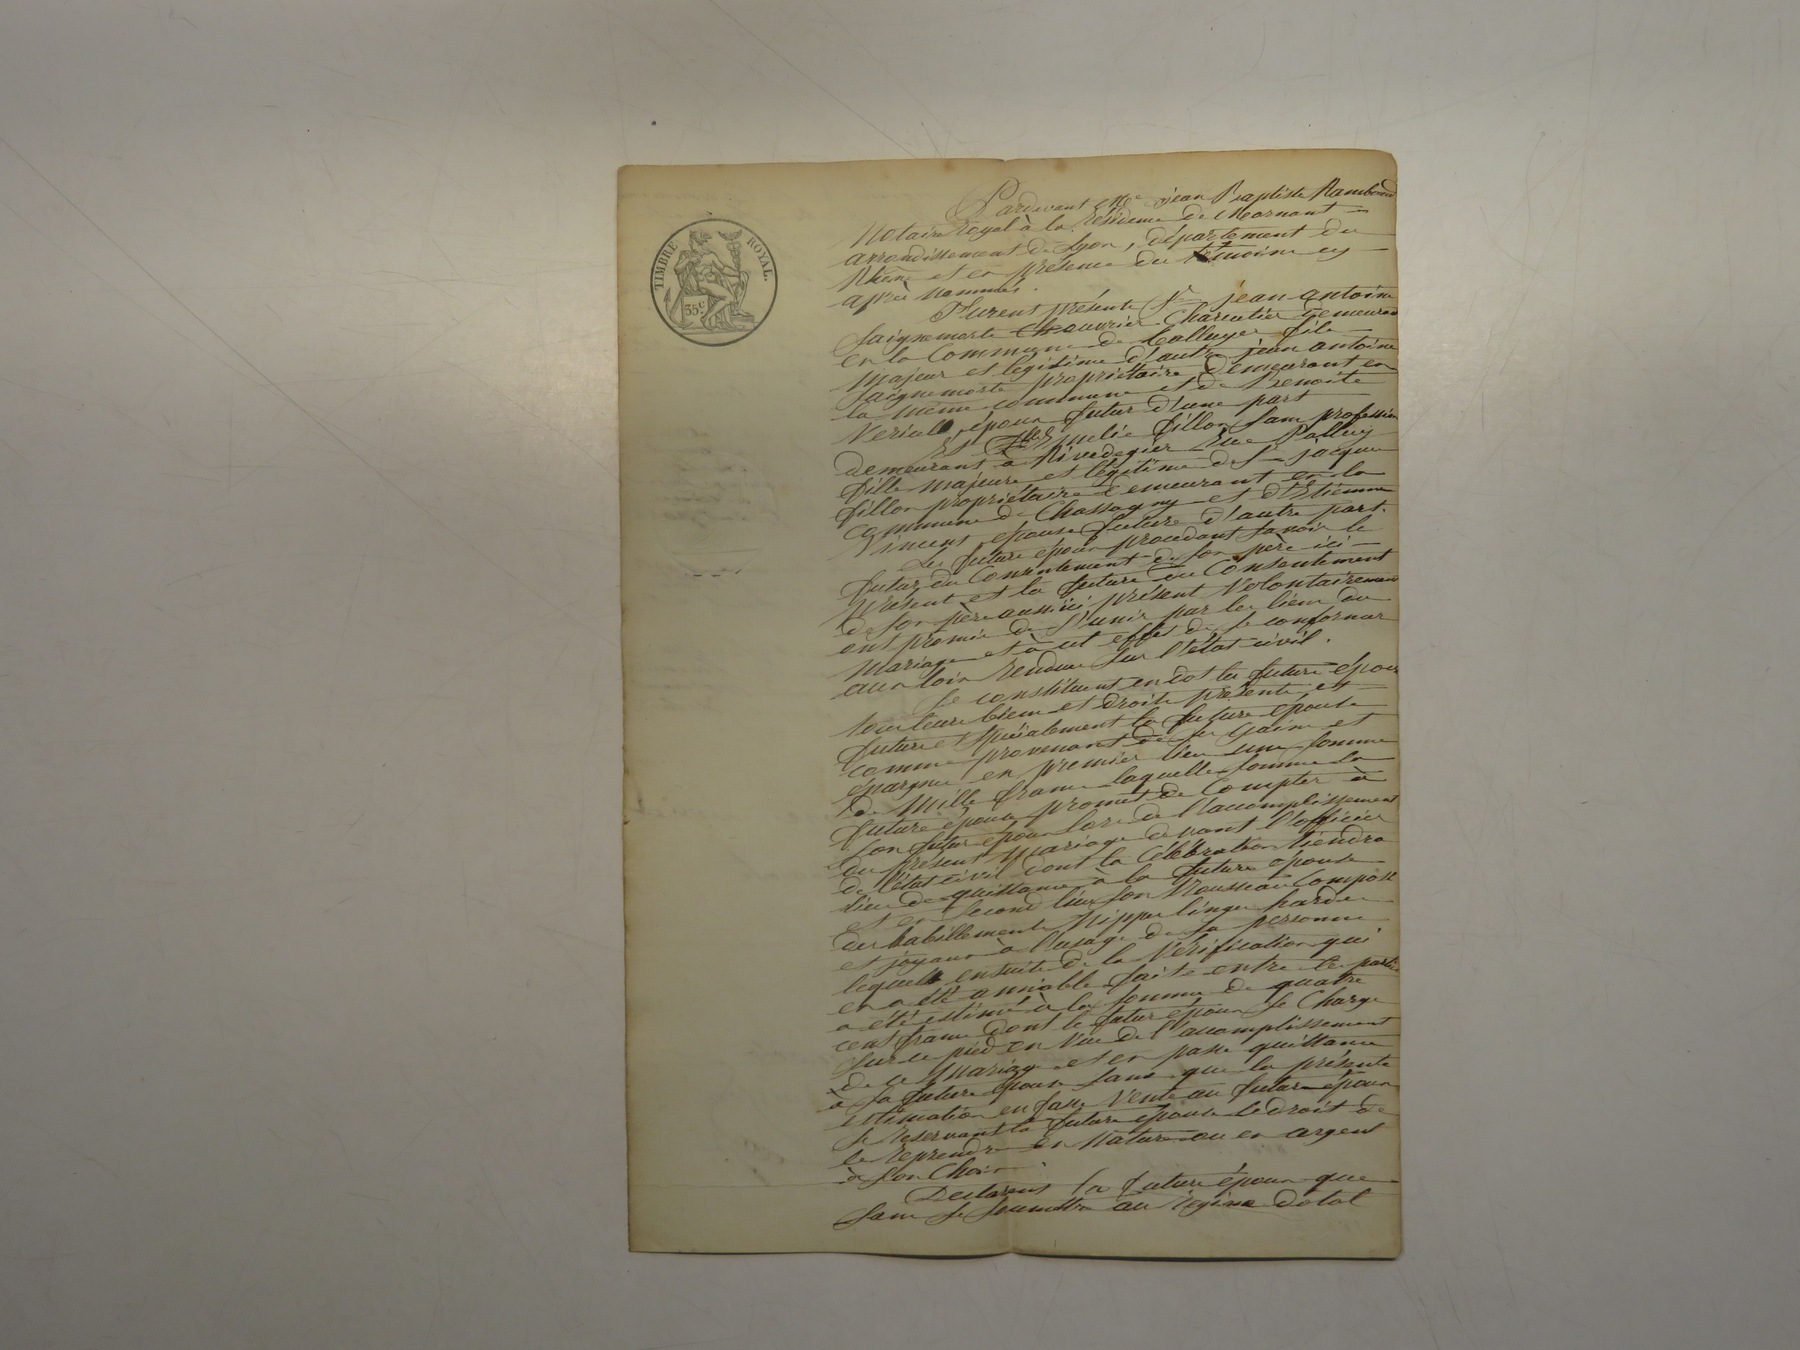 TIMBRE ROYAL.
35c
Pardevant Me jean Baptiste Rambaud
Notaire Royal à la Résidence de Mornant
arrondissement de Lyon, département du
Rhône et en présence des témoins cy
après nommés.
Furent présents Sr jean antoine
Saignemorte ouvrier Charcutier demeurant
en la Commune de Talluyer fils
majeur et légitime d'autre jean antoine
Saignemorte propriétaire demeurant en
la même commune et de Benoite
époux futur d'une part
Et Dlle Emelie fillon Sans profession
demeurant à Rivedegier Rue Palluy
fille majeure et légitime de Sr jacques
fillon propriétaire demeurant en la
Commune de Chassagny et d'Etiennette
Vincent épouse future d'autre part.
Les futurs époux procedant savoir le
futur du Consentement de son père ici
présent et la future du Consentement
de son père aussi ici présent Volontairement
ont promis de s'unir par les liens du
Mariage et à cet effet de se conformer
aux loix rendues sur l'état civil.
Se constituent en dot les futurs époux
tous leurs biens et droits présents et
futurs et spécialement la future épouse
comme provenant de ses gains et
épargnes en premier lieu une somme
de Mille francs laquelle somme la
future épouse promet de Compter à
son futur époux lors de l'accomplissement
du présent Mariage devant l'officier
de l'état civil dont la Célébration tiendra
lieu de quittance à la future épouse
et en second lieu son trousseau Composé
des habillements Nippes linges hardes
et joyaux à l'usage de sa personne
lequel ensuite de la Vérification qui
en a été amiable faite entre les parties
a été estimé à la somme de quatre
cent francs dont le futur époux se Charge
sur ce pied en Vue de l'accomplissement
de ce Mariage et en passe quittance
à sa future épouse sans que la présente
estimation en fasse Vente au futur époux
se Réservant la future épouse le droit de
les Reprendre en Nature ou en argent
à son Choix.
Déclarent les futurs époux que
sans se soumettre au Régime dotal